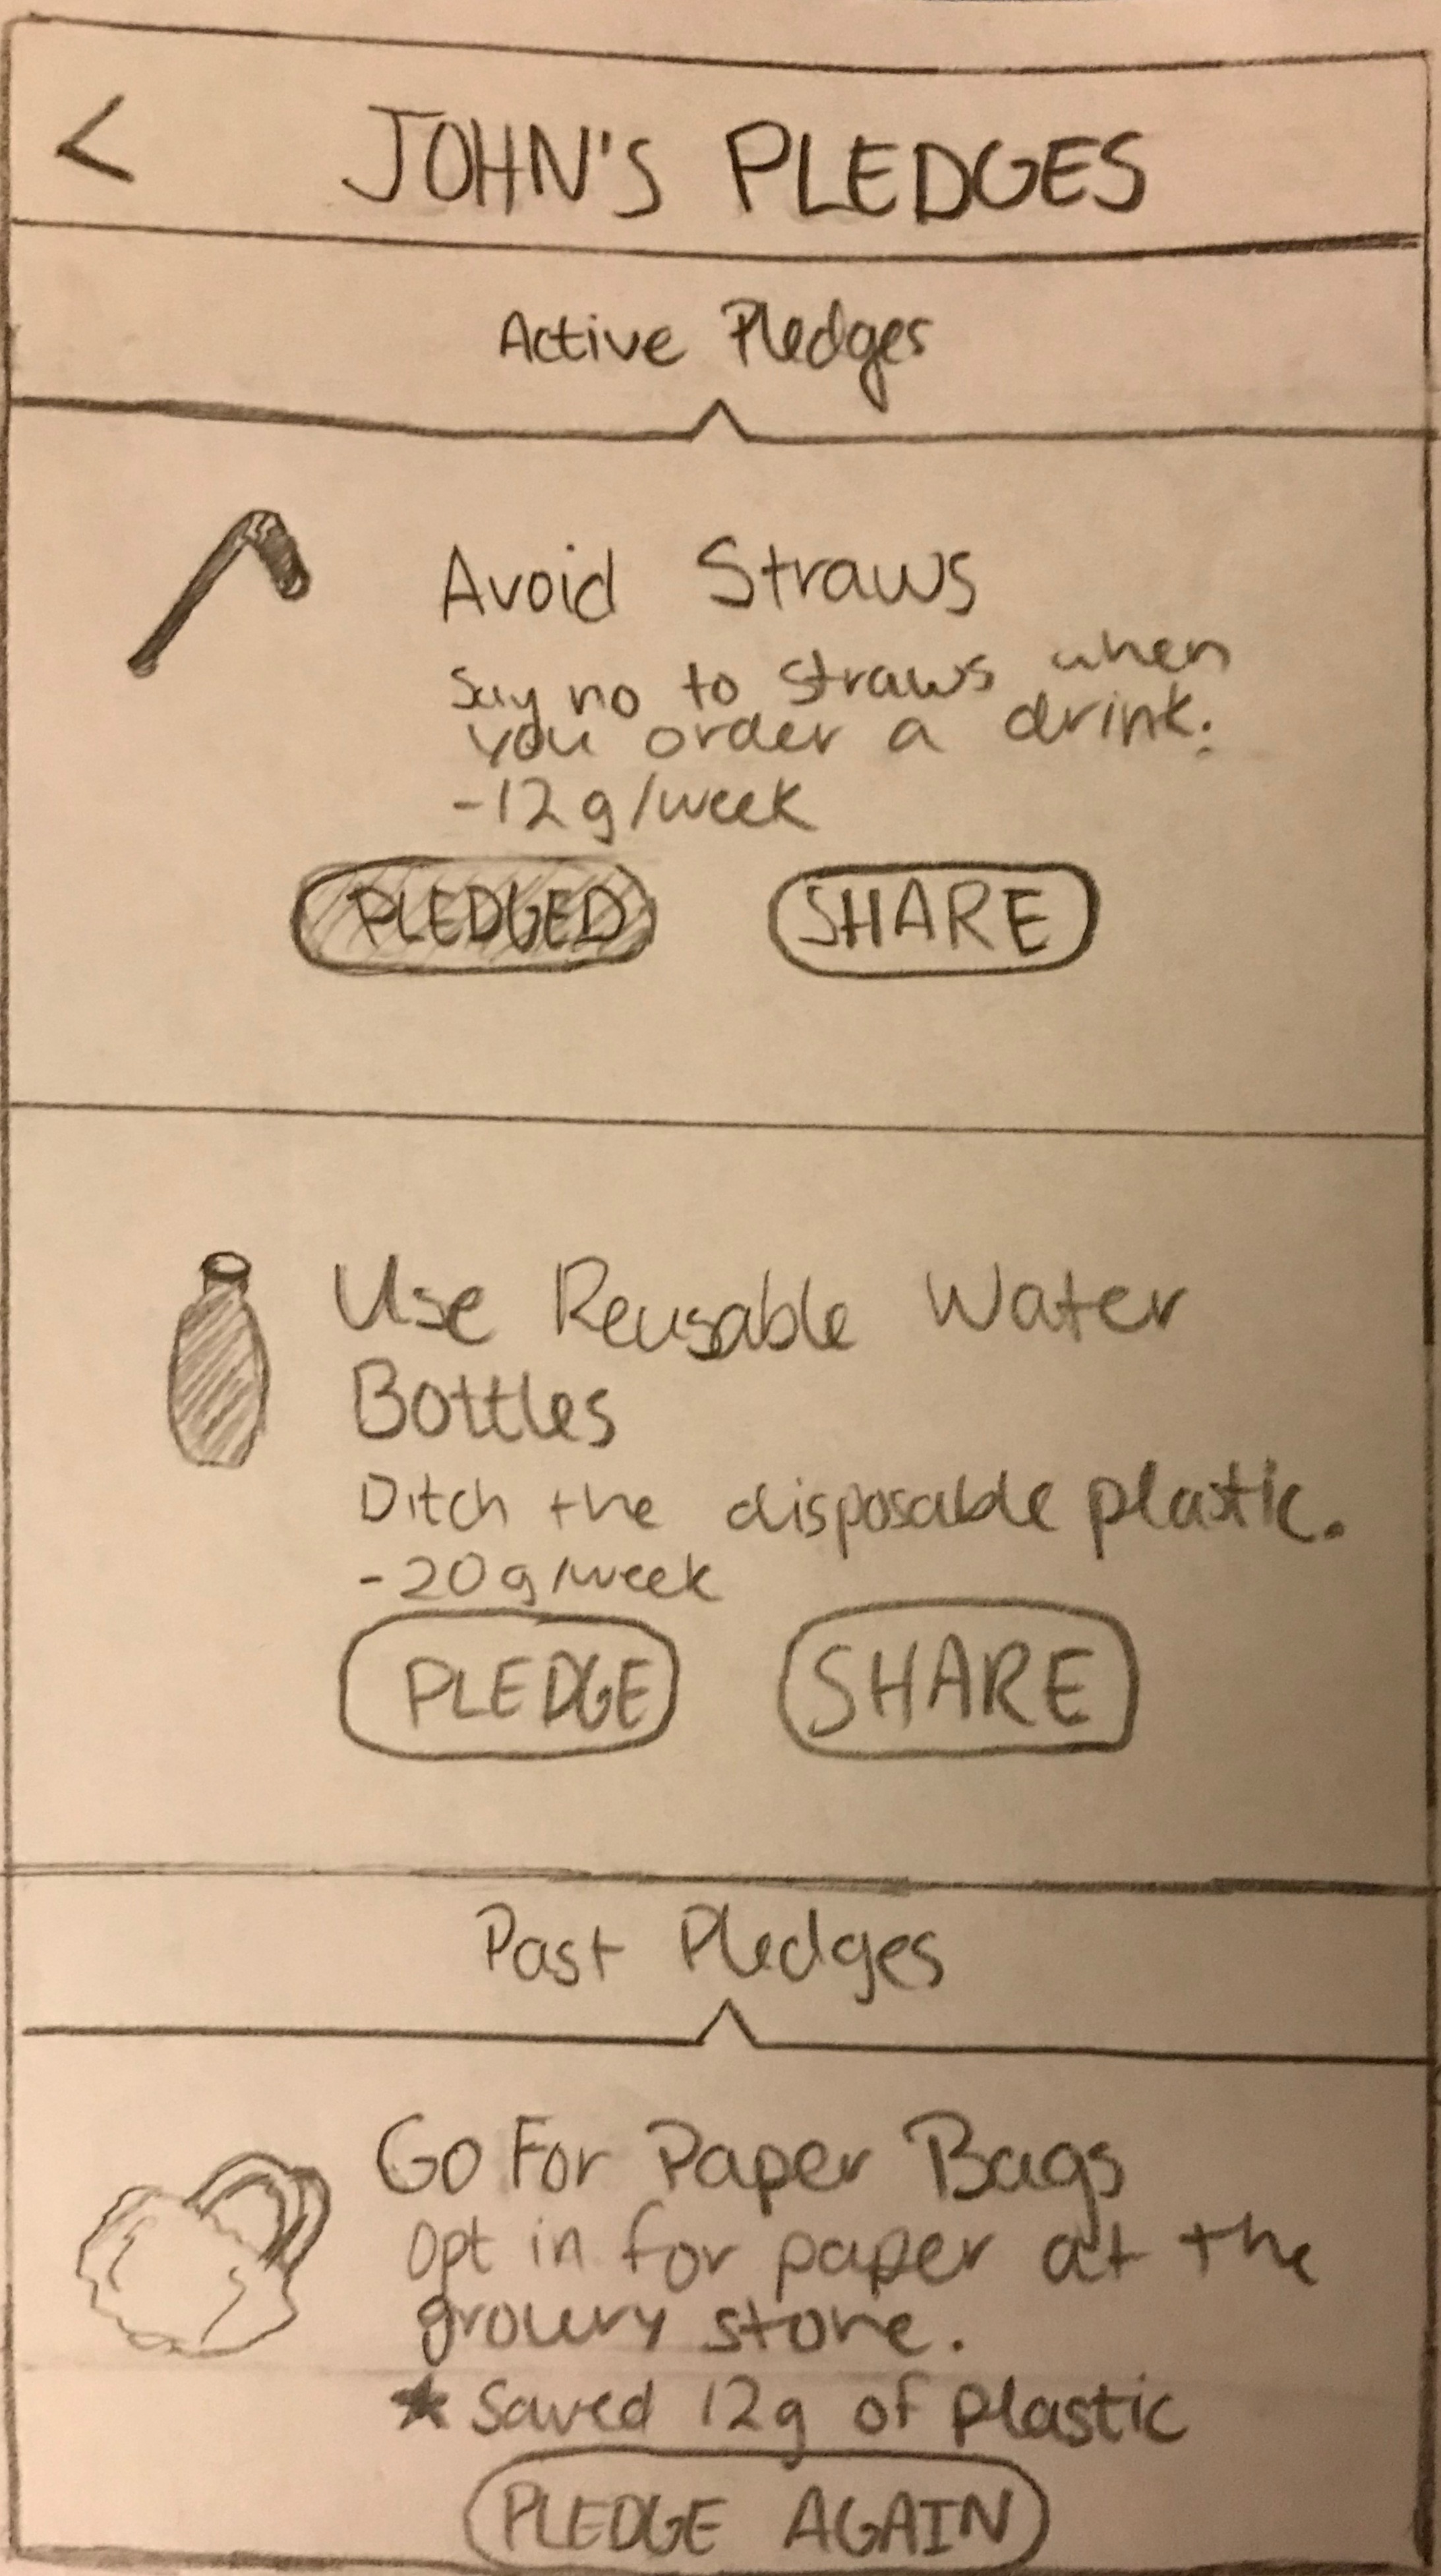 < JOHN'S PLEDGES
Active Pledges
Avoid Straws
Say no to straws when
you order a drink.
-12g/week
PLEDGED SHARE
Use Reusable Water
Bottles
Ditch the disposable plastic.
-20g/week
PLEDGE SHARE
Past Pledges
Go For Paper Bags
Opt in for paper at the
grocery store.
★ Saved 12g of plastic
PLEDGE AGAIN